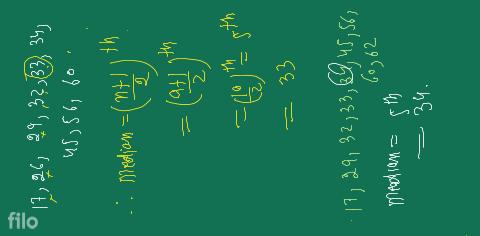 17, 26, 29, 32, 33, 34,
45, 56, 60.
∴ median = (n+1/2)^th
= (9+1/2)^th
= (10/2)^th = 5^th
= 33
17, 29, 32, 33, 45, 56,
60, 62
median = 5^th
= 34.
filo